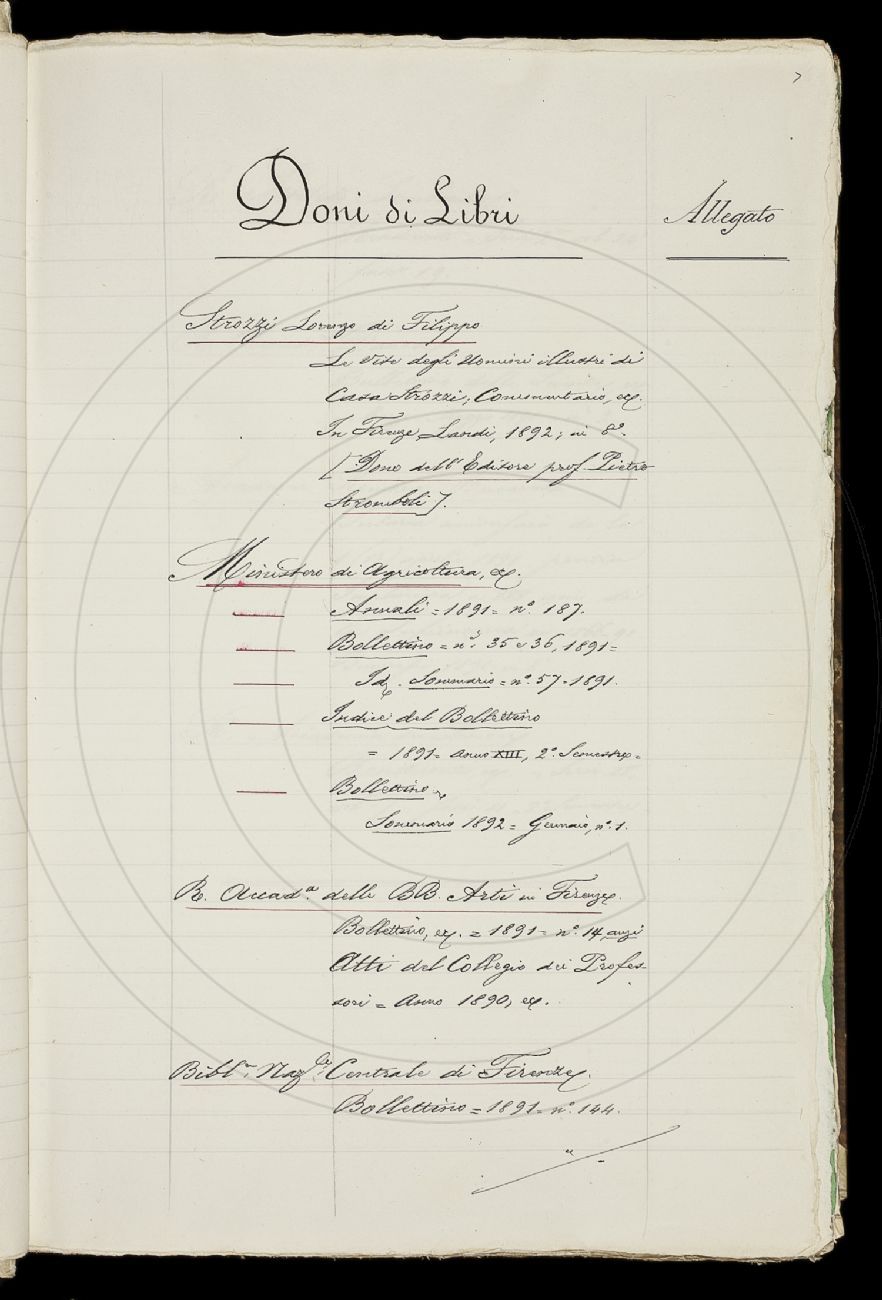 7
Doni di Libri
Allegato
Strozzi Lorenzo di Filippo
Le Vite degli Uomini illustri di
Casa Strozzi; Commentario, ec.
In Firenze, Landi, 1892; in 8º.
[Dono dell' Editore prof. Pietro
Stromboli].
Ministero di Agricoltura, ec.
Annali = 1891 = nº. 187.
Bollettino = nⁱ. 35 e 36, 1891 =
Id. Sommario = nº. 57 = 1891.
Indice del Bollettino
= 1891 = Anno XIII, 2º. Semestre =
Bollettino
Sommario 1892 = Gennaio, nº. 1.
R. Accadª. delle BB. Arti in Firenze.
Bollettino, ec. = 1891 = nº. 14, anzi
Atti del Collegio dei Profes-
sori = Anno 1890, ec.
Bibl. Nazle. Centrale di Firenze.
Bollettino = 1891 = nº. 144.